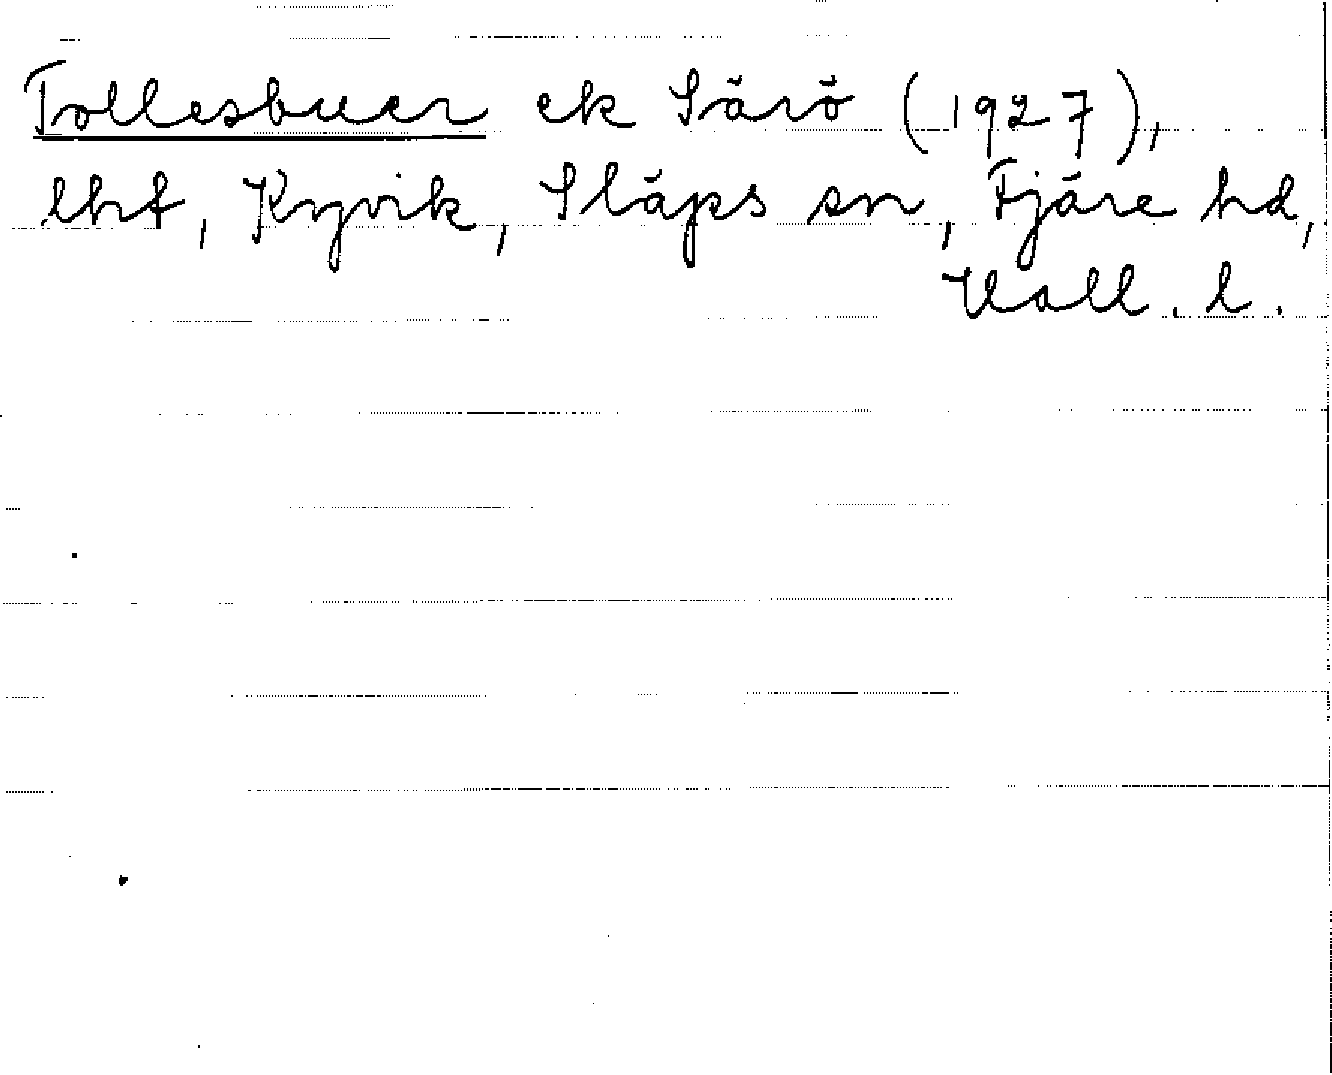 Tollesbuer ek Särö (1927),
lht, Kyvik, Släps sn, Fjäre hd,
Hall. l.